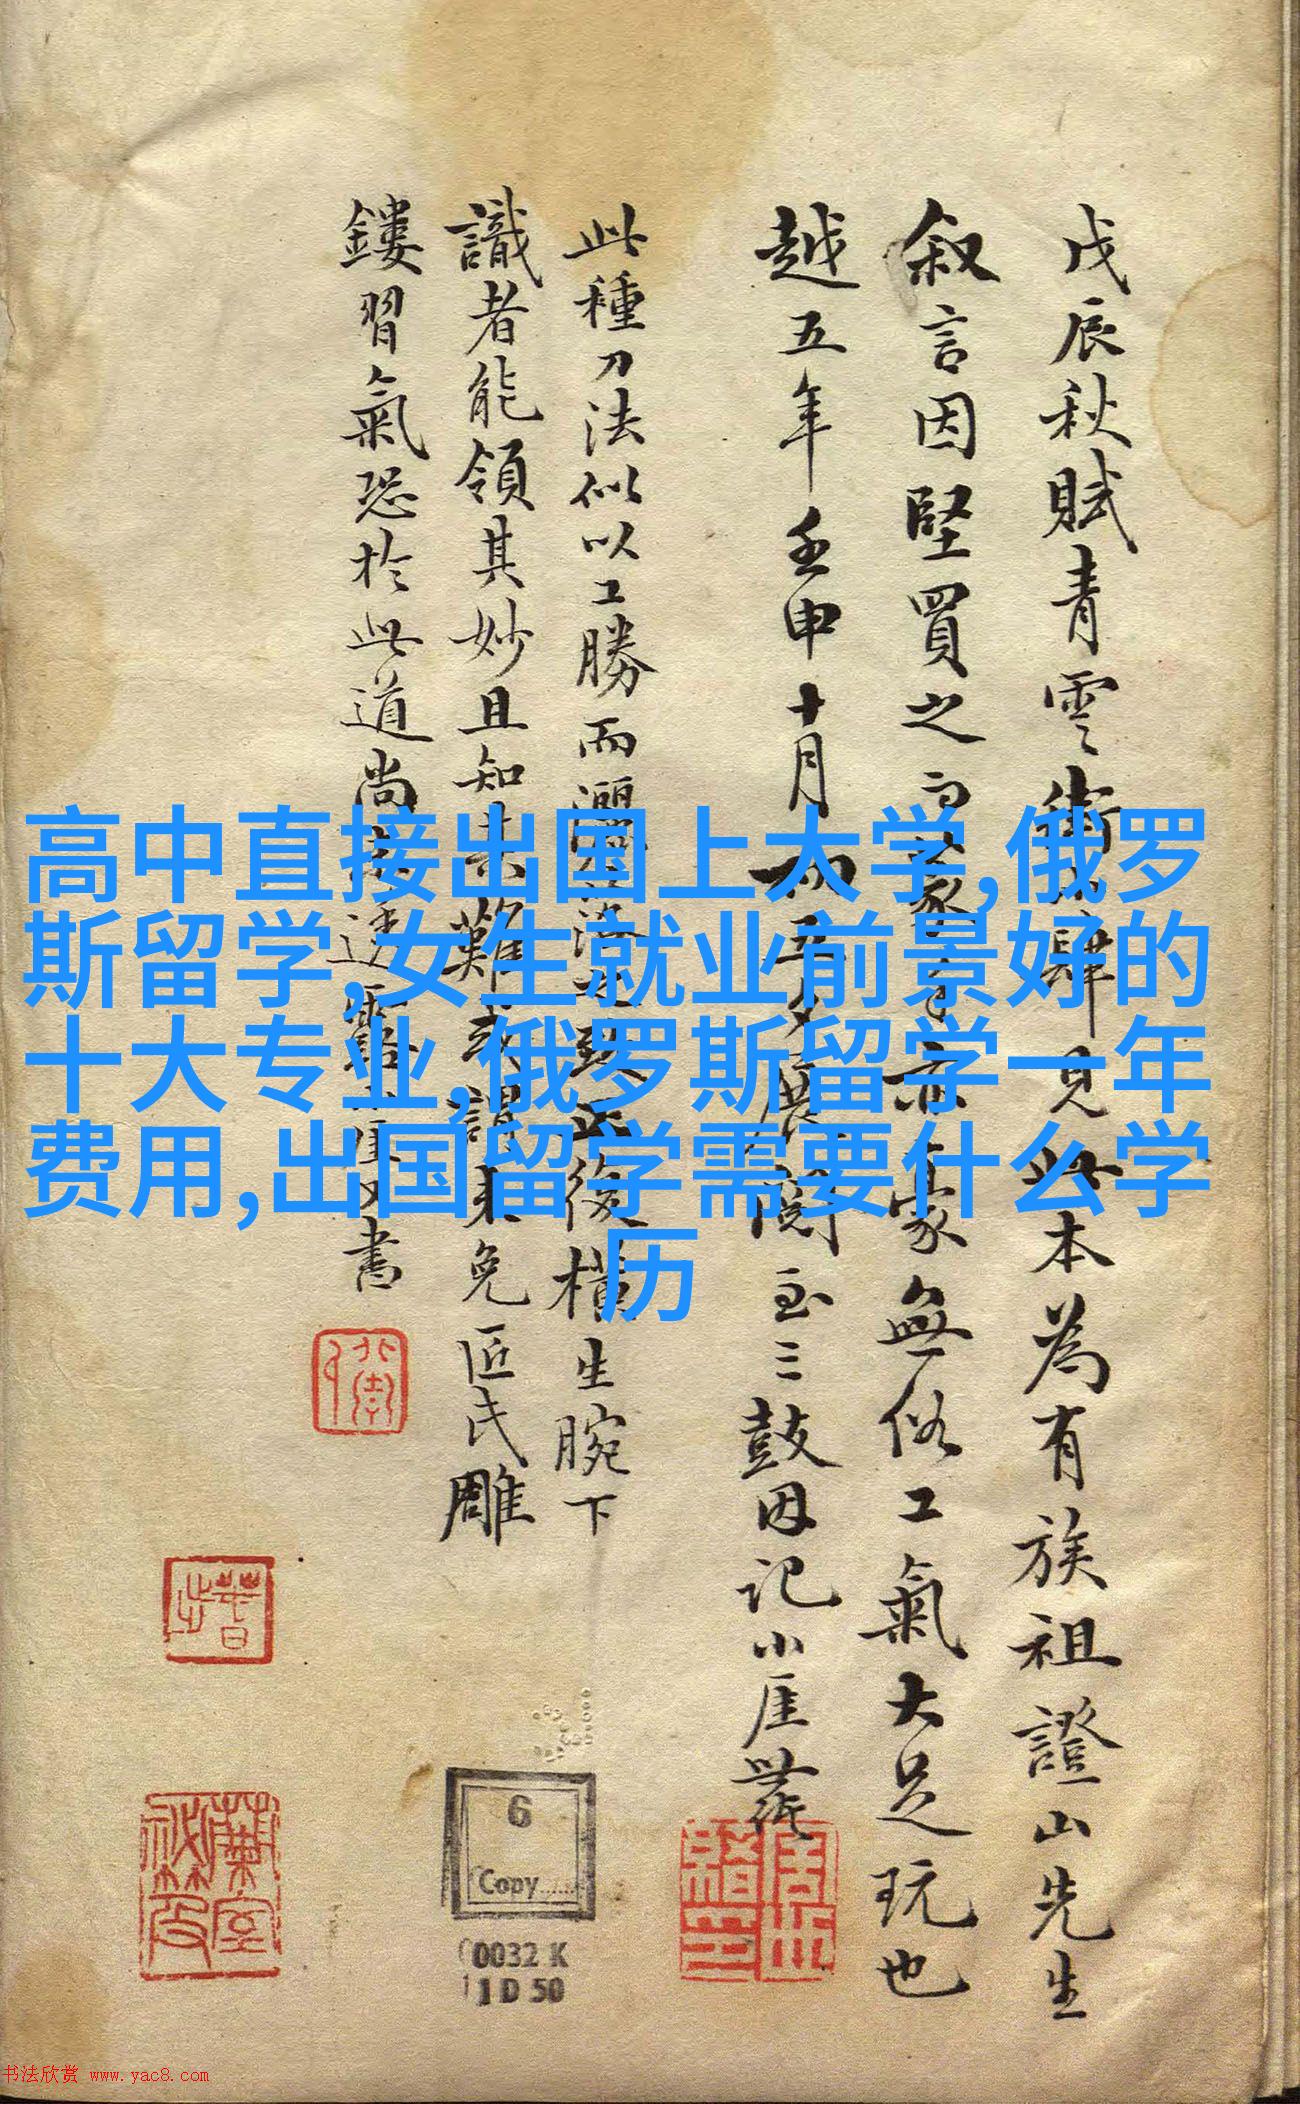 戊辰秋賦青雲街書肆見此本為有族祖證山先生
叙言因堅買之
亦豪無俗工氣大足玩也
越五年壬申十月初五夕展閱至三鼓因记小厓
此種刀法似以工勝而灑落之致正
後橫生腕下
識者能領其妙且知其難或謂未免匠氏雕
鏤習氣恐於此道尚
書
高中直接出国上大学,俄罗
斯留学,女生就业前景好的
十大专业,俄罗斯留学一年
费用,出国留学需要什么学
历
6
Copy......
0032 K
1 D 50
书法欣赏 www.yac8.com